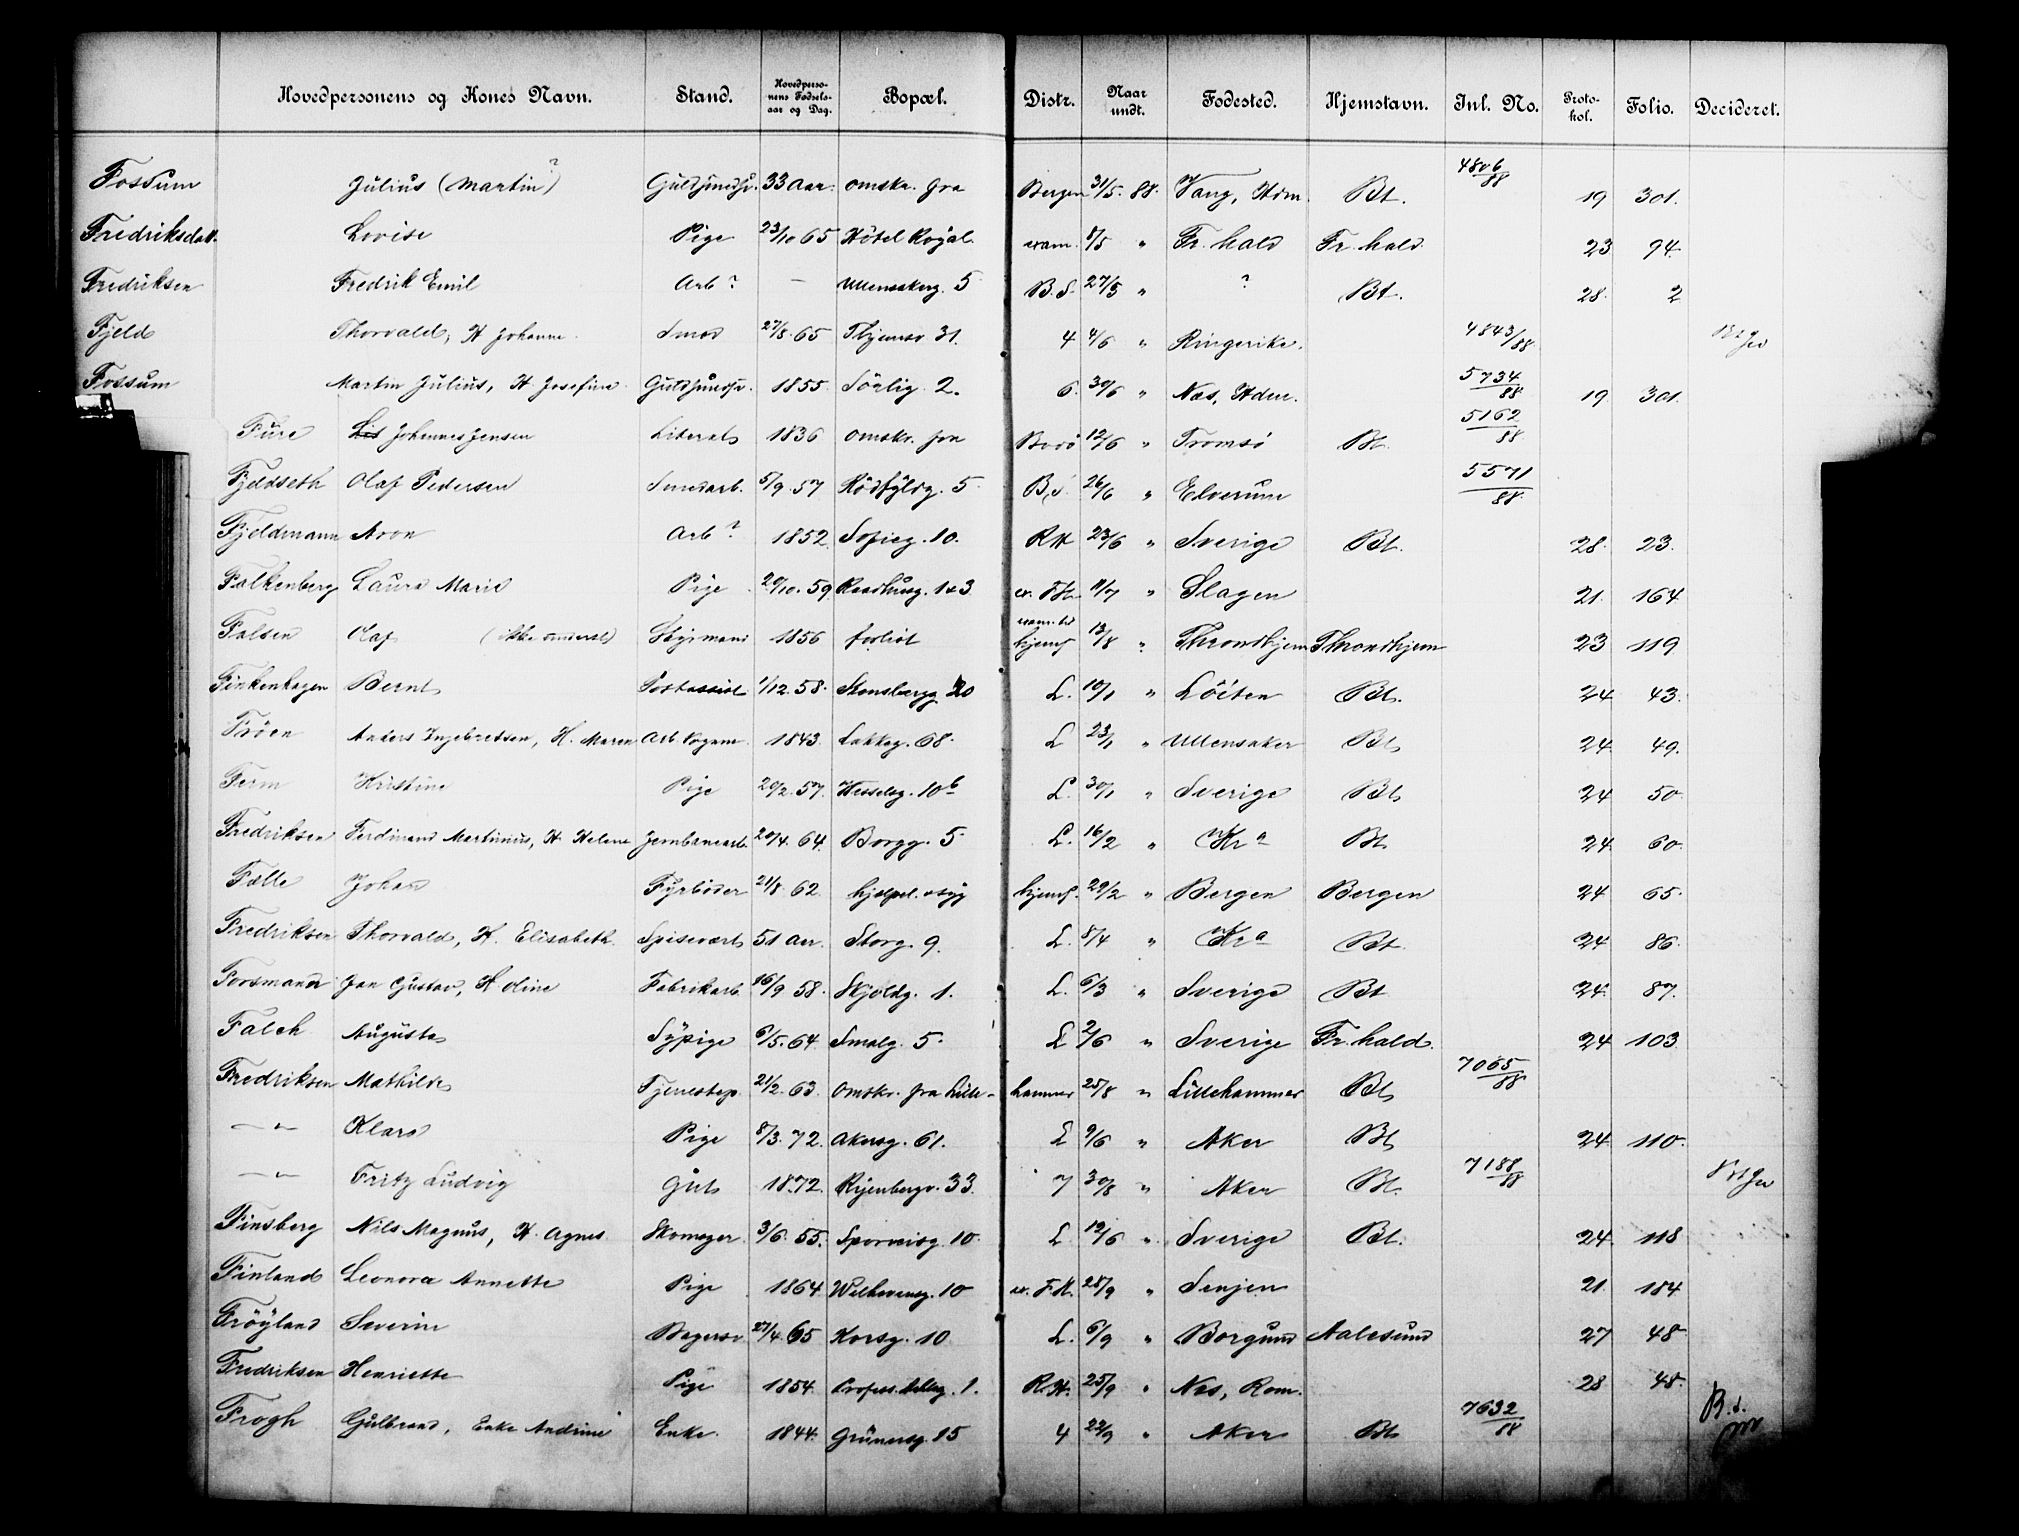 Hovedpersonens og Kones Navn. Stand. Hovedpersonens Fødselsaar og Dag. Bopæl. Distr. Naar undt. Fødested. Hjemstavn. Inl. No. Protokol. Folio. Decideret.
Fossum Julius (Martin?) Guldsmedsv. 33 Aar. omskr. fra Bergen 31/5. 88. Vang, Hdm. Bt. 4806/88 19 301.
Fredriksdatt. Lovise Pige 23/10 65 Hôtel Royal. 8/5 " Fr. hald Fr. hald 23 94.
Fredriksen Fredrik Emil Arb? — Ullensakerg. 5 B.S. 27/5 " ? Bt. 28. 2
Fjeld Thorvald, H Johanne. Smed 27/8. 65 31. 4 4/6 " Ringerike. 4843/88
Fossum Martin Julius, H. Josefine Guldsmedsv. 1855. Sörlig. 2. 6. 30/6 " Næs, Hdm. 5734/88 19 301.
Fure Johannes Jensen Literat 1836 omskr. fra Bodö 12/6 " Tromsö Bt. 5162/88
Fjeldseth Olaf Pedersen Smedarb. 5/9. 57 Rödfyldg. 5 B.S. 26/6 " Elverum 5571/88
Fjeldmann Aron Arb? 1852. Sofieg. 10. RH 23/6 " Sverige Bt. 28. 23.
Falkenberg Laura Marie Pige 20/10. 59. Raadhusg. 1&3 11/7 " Slagen 21. 164
Falsen Olaf (ikke underst) Styrmand 1856 forlist hjems 13/8 " Throndhjem Throndhjem 23 119
Finkenhagen Bernt Postassist 1/12. 58. Stensbergg. 20 L. 10/1 " Löiten Bt. 24 43.
Fröen Anders Ingebretsen, H. Maren Arb. Vognm. 1843. Lakkeg. 68. L 23/1 " Ullensaker Bt 24 49.
Ferm Kristine Pige 20/2. 57. Hesselsg. 10b L. 30/1 " Sverige Bt 24 50.
Fredriksen Ferdinand Martinius, H. Helene Jernbanearb. 20/4. 64. Borgg. 5 L. 16/2 " Kra Bt 24. 60.
Fælle Johan Fyrböder 21/8. 62. hjælpel. & syg hjems. 29/2 " Bergen Bergen 24 65.
Fredriksen Thorvald, H. Elisabeth. Spisevært 51 Aar. Storg. 9. L. 8/4 " Kra Bt. 24 86.
Forsmand Jan Gustav, H Oline Fabrikarb. 16/9 58. Skjoldg. 1. L. 6/3 " Sverige Bt 24. 87.
Falch Augusta Sypige 6/5. 64. Smalg. 5. L 2/6 " Sverige Fr. hald. 24 103
Fredriksen Mathilde Tjenestep. 21/2. 63. omskr. fra Lille- hammer 25/8 " Lillehammer Bt 7065/88
— " — Klara Pige 8/3. 72. Akersg. 61. L 9/6 " Aker Bt 24 110.
— " — Fritz Ludvig Gut 1872. Ryenbergv. 33. 7 30/8 " Aker Bt. 7188/88
Finsberg Nils Magnus, H. Agnes Skomager. 3/6. 55. Sporveisg. 10. L. 19/6 " Sverige Bt. 24. 118
Finland Leonora Annette Pige 1864. Welhavensg. 10 28/9 " Senjen 21. 184
Fröyland Severin Bagersv. 27/4. 65 Korsg. 10. L. 6/9 " Borgund Aalesund 27 48
Fredriksen Henriette Pige 1854. 1. R.H. 25/9 " Næs, Rom. 28 48.
Frogh Gulbrand, Enke Andrine Enke. 1844. Grünersg. 15 4 22/9 " Aker Bt 7632/88 B.S.